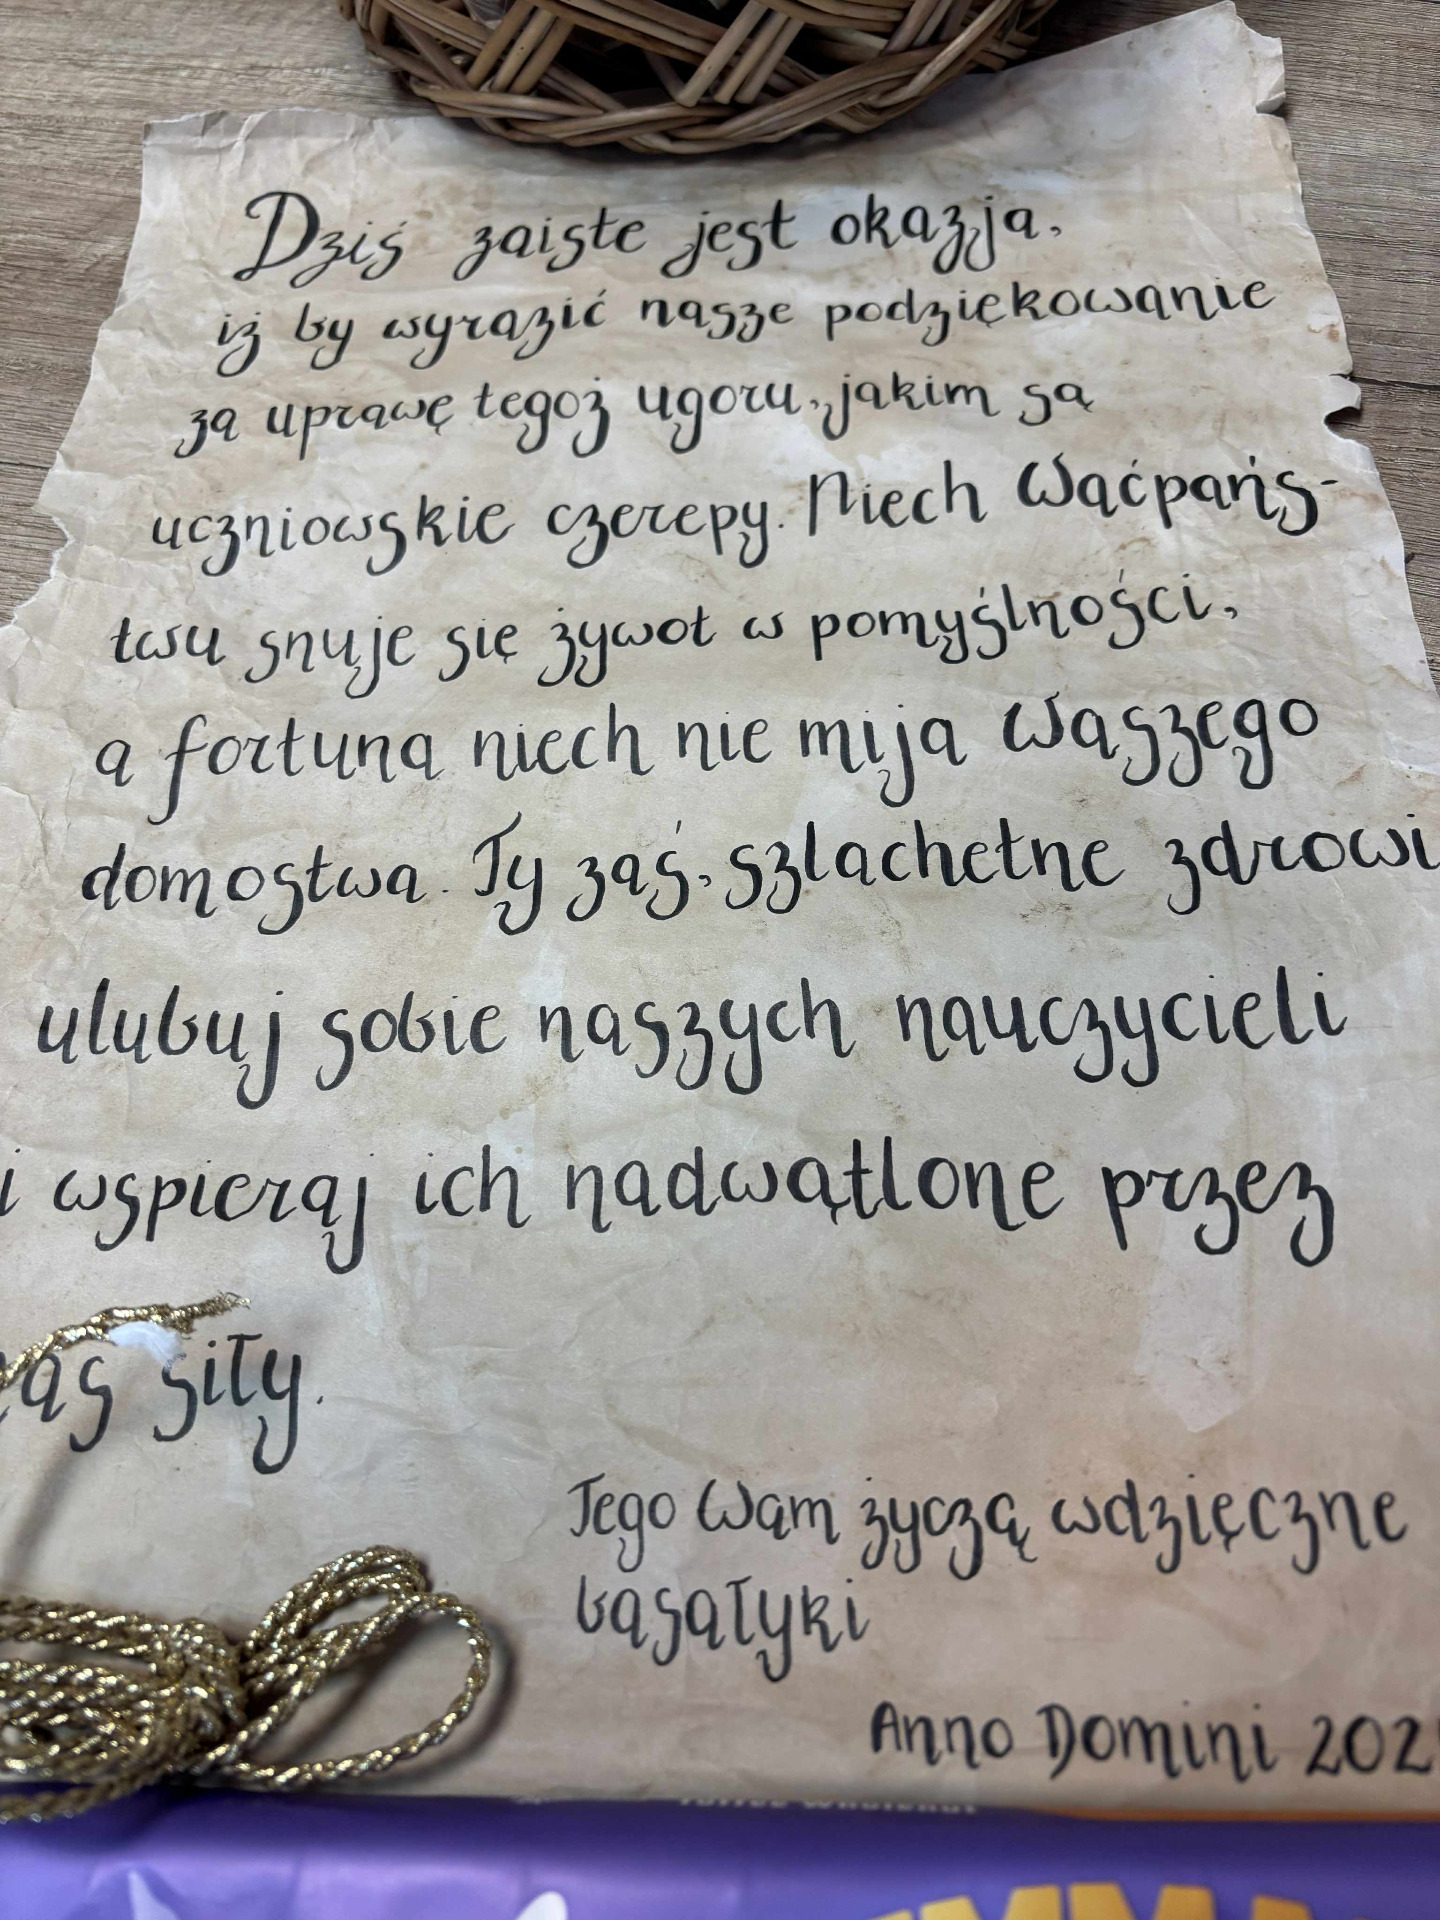 Dziś zaiste jest okazja,
iż by wyrazić nasze podziękowanie
za uprawę tegoż ugoru, jakim są
uczniowskie czerepy. Niech Waćpańs-
twu snuje się żywot w pomyślności,
a fortuna niech nie mija Waszego
domostwa. Ty zaś, szlachetne zdrowi
ulubuj sobie naszych nauczycieli
i wspieraj ich nadwątlone przez
siły.
Tego Wam życzą wdzięczne
basałyki
Anno Domini 202